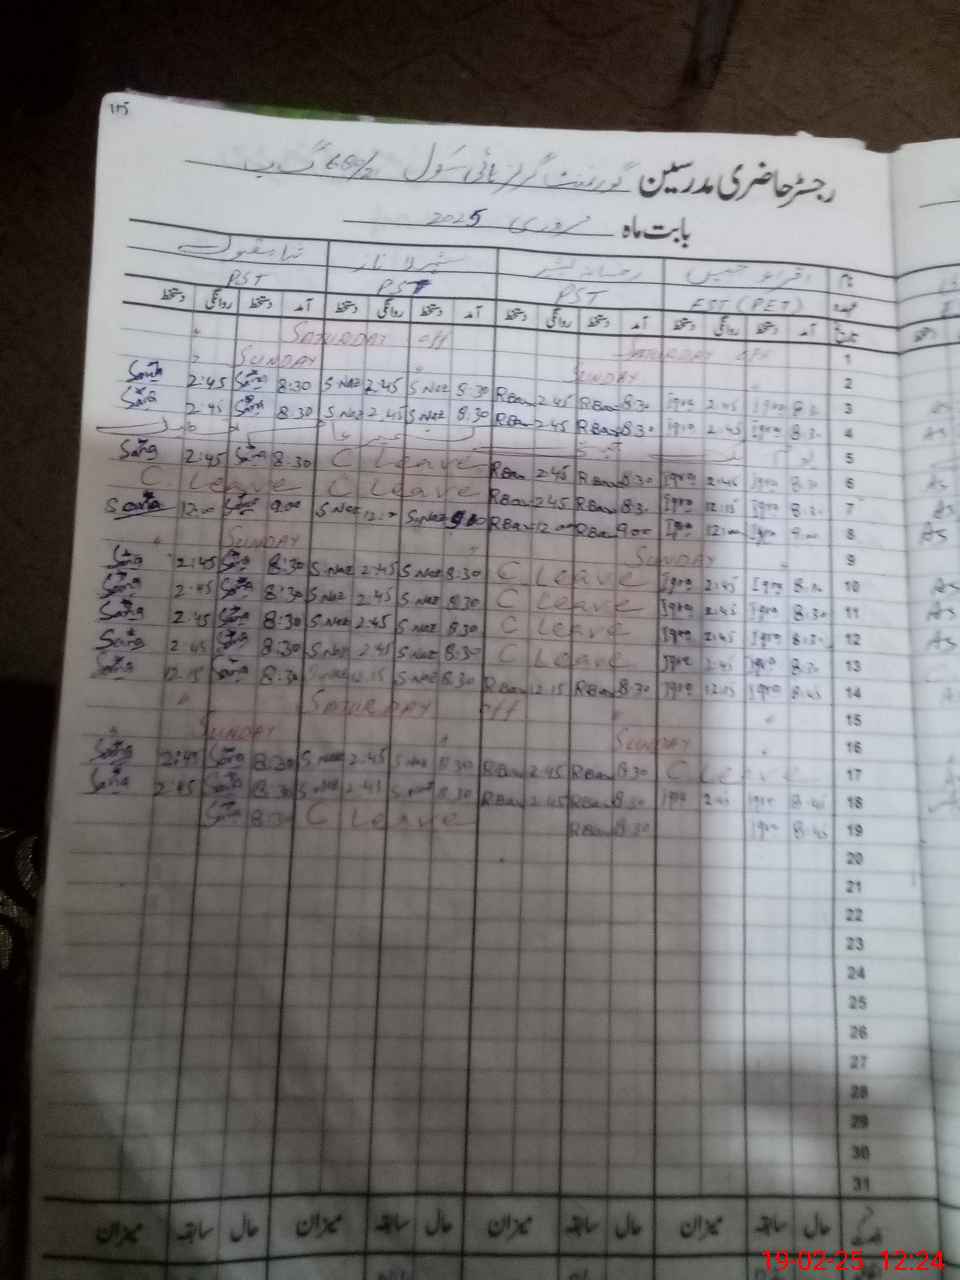 ۱۲۵
رجسٹر حاضری مدرسین گورنمنٹ گرلز ہائی سکول 680/21 گ ب
بابت ماہ فروری 2025
نام
عہدہ EST (PET) PST PST PST
تاریخ آمد دستخط روانگی دستخط آمد دستخط روانگی دستخط آمد دستخط روانگی دستخط آمد دستخط روانگی دستخط
SATURDAY off SATURDAY off 1
SUNDAY SUNDAY 2
Sana 2:45 Sana 8:30 S.Naz 2:45 S.Naz 8:30 RBan 2:45 RBan 8:30 Iqra 2:45 Iqra 8:30 3
Sana 2:45 Sana 8:30 S.Naz 2:45 S.Naz 8:30 RBan 2:45 RBan 8:30 Iqra 2:45 Iqra 8:30 4
5
Sana 2:45 Sana 8:30 C Leave RBan 2:45 RBan 8:30 Iqra 2:45 Iqra 8:30 6
C. Leave C Leave RBan 2:45 RBan 8:30 Iqra 12:15 Iqra 8:30 7
Sana 12:00 Sana 9:00 S.Naz 12:00 S.Naz 9:00 RBan 12:00 RBan 9:00 Iqra 12:00 Iqra 9:00 8
SUNDAY SUNDAY 9
Sana 2:45 Sana 8:30 S.Naz 2:45 S.Naz 8:30 C Leave Iqra 2:45 Iqra 8:30 10
Sana 2:45 Sana 8:30 S.Naz 2:45 S.Naz 8:30 C Leave Iqra 2:45 Iqra 8:30 11
Sana 2:45 Sana 8:30 S.Naz 2:45 S.Naz 8:30 C Leave Iqra 2:45 Iqra 8:30 12
Sana 2:45 Sana 8:30 S.Naz 2:45 S.Naz 8:30 C Leave Iqra 2:45 Iqra 8:30 13
Sana 12:15 Sana 8:30 S.Naz 12:15 S.Naz 8:30 RBan 12:15 RBan 8:30 Iqra 12:15 Iqra 8:45 14
SATURDAY off 15
SUNDAY SUNDAY 16
Sana 2:45 Sana 8:30 S.Naz 2:45 S.Naz 8:30 RBan 2:45 RBan 8:30 C Leave 17
Sana 2:45 Sana 8:30 S.Naz 2:45 S.Naz 8:30 RBan 2:45 RBan 8:30 Iqra 2:45 Iqra 8:45 18
Sana 8:30 C Leave RBan 8:30 Iqra 8:45 19
20
21
22
23
24
25
26
27
28
29
30
31
حال سابقہ میزان حال سابقہ میزان حال سابقہ میزان حال سابقہ میزان
19-02-25 12:24